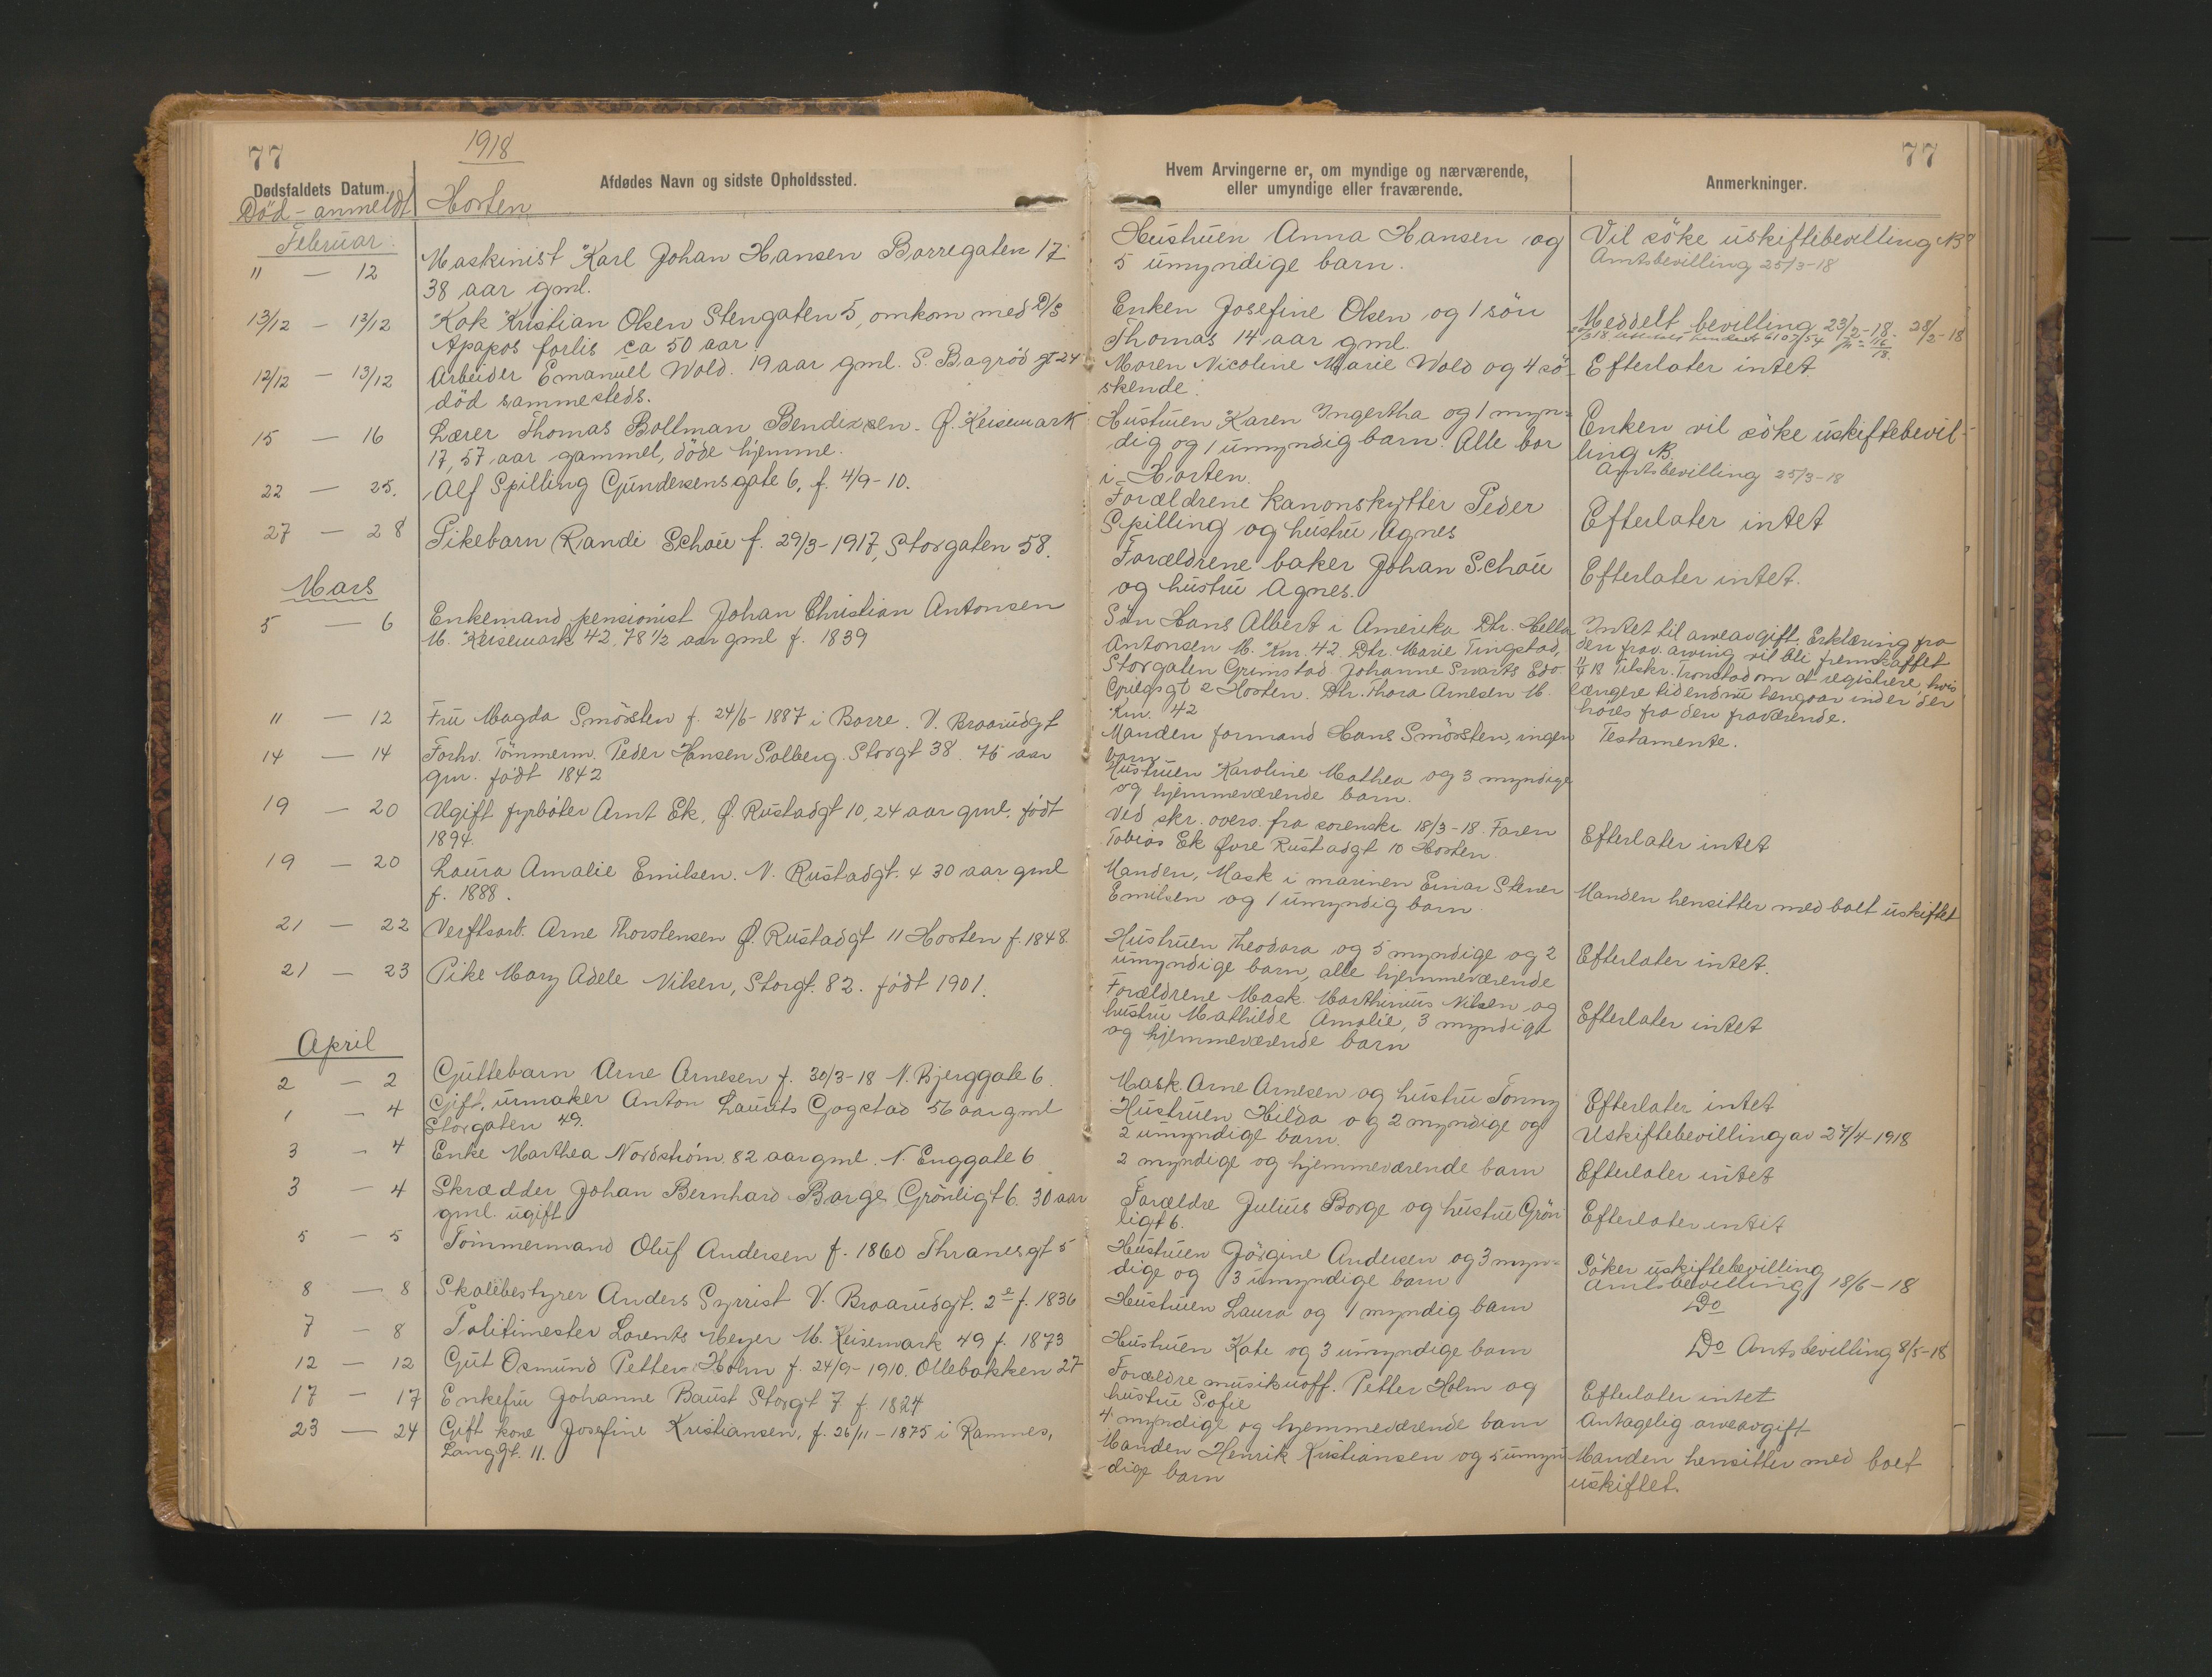 77
1918
Dødsfaldets Datum.
Afdødes Navn og sidste Opholdssted.
Död - anmeldt
Horten
Februar.
11 — 12
Maskinist Karl Johan Hansen Borregaten 17
38 aar gml.
13/12 — 13/12
Kok Kristian Olsen Stengaten 5, omkom med D/S
Apapos forlis ca 50 aar
12/12 — 13/12
Arbeider Emanuel Wold. 19 aar gml. S. Bagrød gt 24
död sammesteds.
15 — 16
Lærer Thomas Bollman Bendixsen - Ø. Keisemark
17, 57 aar gammel, döde hjemme.
22 — 25.
Alf Spilling Gundersensgate 6, f. 4/9-10.
27 — 28
Pikebarn Randi Schou f. 29/3-1917, Storgaten 58.
Mars
5 — 6
Enkemand pensionist Johan Christian Antonsen
M. Keisemark 42, 78 1/2 aar gml f. 1839
11 — 12
Fru Magda Smörsten f. 24/6-1887 i Borre. V. Braarudgt
14 — 14
Forhv. Tömmerm. Peder Hansen Solberg. Storgt 38. 76 aar
gm. födt 1842
19 — 20
Ugift fyrbøter Arnt Ek, Ø. Rustadgt 10, 24 aar gml, født
1894.
19 — 20
Laura Amalie Emilsen. N. Rustadgt. 4 30 aar gml
f. 1888.
21 — 22
Verftsarb. Arne Thorstensen Ø. Rustadgt 11 Horten f. 1848.
21 — 23
Pike Mary Adele Nilsen, Storgt. 82. födt 1901.
April
2 — 2
Guttebarn Arne Arnesen f. 30/3-18 N. Bjerggate 6.
1 — 4
Gift, urmaker Anton Laurits Gogstad 56 aar gml
Storgaten 49.
3 — 4
Enke Marthea Nordstrøm. 82 aar gml. N. Enggate 6
3 — 4
Skrædder Johan Bernhard Borge Grönligt 6. 30 aar
gml ugift
5 — 5
Tömmermand Oluf Andersen f. 1860 Thranesgt 5
8 — 8
Skolebestyrer Anders Syrrist V. Braarudgt. 2 e f. 1836
7 — 8
Politimester Lorents Meyer M. Keisemark 49 f. 1873
12 — 12
Gut Osmund Petter Holm f. 24/9-1910. Ollebakken 27
17 — 17
Enkefru Johanne Baust Storgt 7 f. 1824
23 — 24
Gift kone Josefine Kristiansen, f. 26/11-1875 i Ramnes,
Langgt. 11.
77
Hvem Arvingerne er, om myndige og nærværende,
eller umyndige eller fraværende.
Anmerkninger.
Hustruen Anna Hansen og
5 umyndige barn.
Vil söke uskiftebevilling
Amtsbevilling 25/3-18
Enken Josefine Olsen og 1 sön
Thomas 14 aar gml.
Meddelt bevilling 23/2-18. 28/2-18
Moren Nicoline Marie Wold og 4 sö-
skende.
Efterlater intet
Hustruen Karen Ingertha og 1 myn-
dig og 1 umyndig barn. Alle bor
i Horten.
Enken vil söke uskiftebevil-
ling
Amtsbevilling 25/3-18
Forældrene kanonskytter Peder
Spilling og hustru Agnes
Efterlater intet
Forældrene baker Johan Schou
og hustru Agnes.
Efterlater intet.
Sön Hans Albert i Amerika Dtr. Hella
Antonsen M. Km. 42. Dtr. Marie Tingstad,
Storgaten Grimstad Johanne Svarts Edv.
Griegsgt 2 Horten. Dtr. Thora Arnesen M.
Km. 42
Intet til arveavgift. Erklæring fra
den frav. arving vil bli fremskaffet
Tilskr. Tronstad om at registrere, hvis
længere tid endnu hengaar inden der
höres fra den fraværende.
Manden formand Hans Smørsten, ingen
barn
Testamente.
Hustruen Karoline Mathea og 3 myndige
og hjemmeværende barn.
Ved skr. overs. fra sorenskr 18/3-18. Faren
Tobias Ek Øvre Rustadgt 10 Horten
Efterlater intet
Manden, Mask i marinen Einar Stener
Emilsen og 1 umyndig barn
Manden hensitter med boet uskiftet
Hustruen Theodora og 5 myndige og 2
umyndige barn, alle hjemmeværende
Efterlater intet.
Forældrene Mask. Marthinius Nilsen og
hustru Mathilde Amalie, 3 myndige
og hjemmeværende barn
Efterlater intet
Mask. Arne Arnesen og hustru Tonny
Efterlater intet
Hustruen Hilda og 2 myndige og
2 umyndige barn.
Uskiftebevilling av 27/4-1918
2 myndige og hjemmeværende barn
Efterlater intet
Forældre Julius Borge og hustru Grön
ligt 6.
Efterlater intet
Hustruen Jörgine Andersen og 3 myn-
dige og 3 umyndige barn
Söker uskiftebevilling
Amtsbevilling 18/6-18
Hustruen Laura og 1 myndig barn
Do
Hustruen Kate og 3 umyndige barn
Do Amtsbevilling 8/5-18
Forældre musikuoff. Petter Holm og
hustru Sofie
Efterlater intet
4 myndige og hjemmeværende barn
Antagelig arveavgift
Manden Henrik Kristiansen og 5 umyn
dige barn
Manden hensitter med boet
uskiftet.